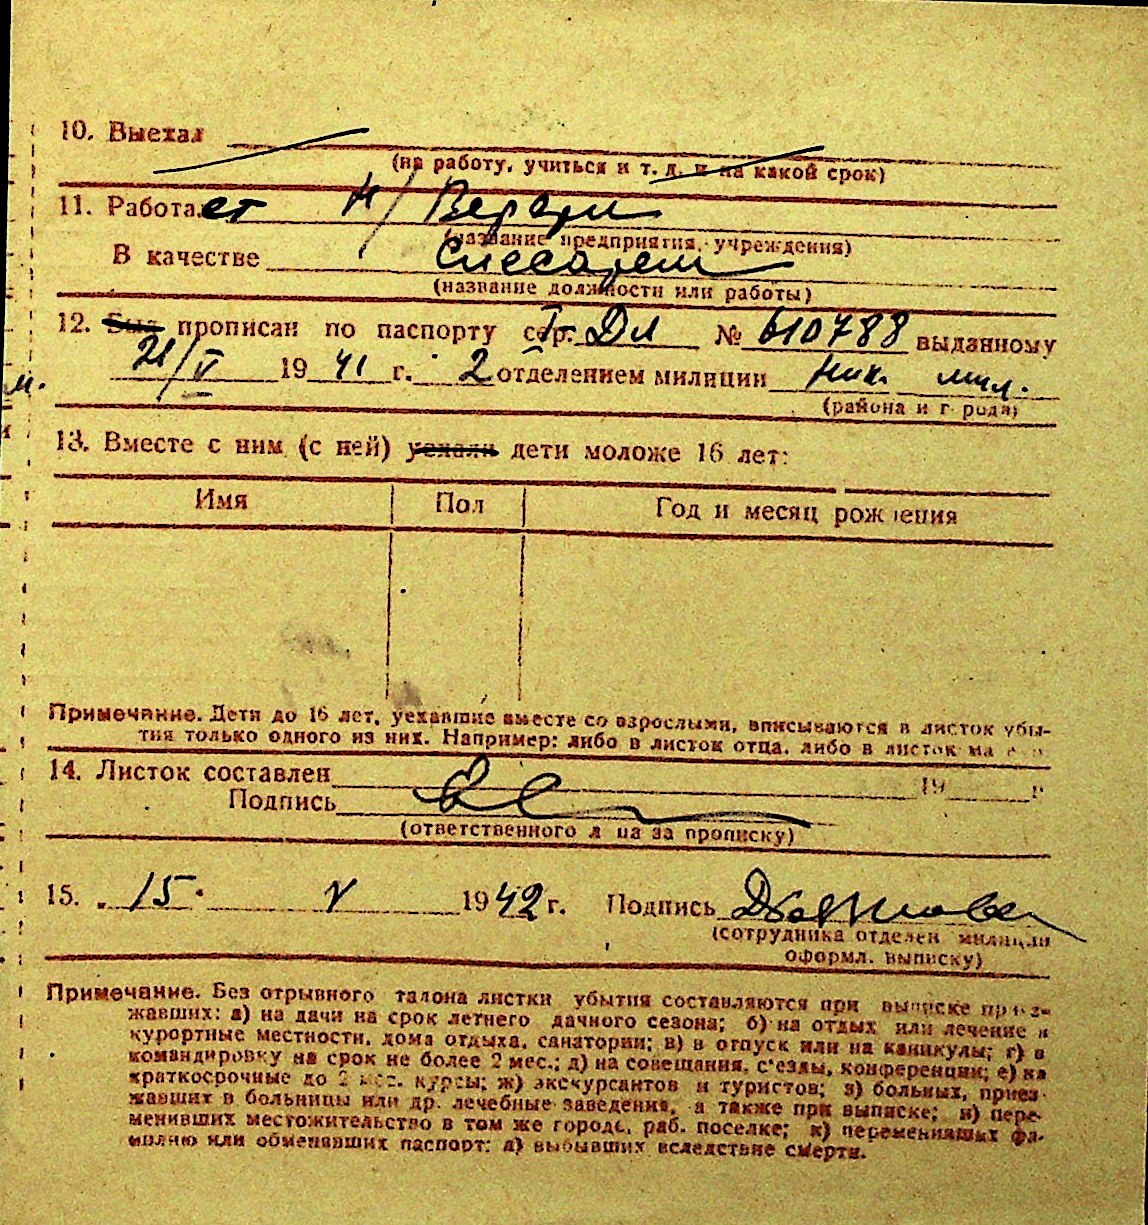 10. Выехал
(на работу, учиться и т. д. и на какой срок)
11. Работает Н/Верфи
(название предприятия, учреждения)
В качестве Слесарем
(название должности или работы)
12. Был прописан по паспорту сер. Дл № 610788 выданному
21/V 1941 г. 2 отделением милиции Ник. мил.
(района и города)
м.
и
13. Вместе с ним (с ней) уехали дети моложе 16 лет:
Имя Пол Год и месяц рождения
Примечание. Дети до 16 лет, уехавшие вместе со взрослыми, вписываются в листок убы-
тия только одного из них. Например: либо в листок отца, либо в листок
14. Листок составлен 19 г
Подпись
(ответственного лица за прописку)
15. 15. V 1942 г. Подпись
(сотрудника отделен милиции
оформл. выписку)
Примечание. Без отрывного талона листки убытия составляются при выписке приез-
жавших: а) на дачи на срок летнего дачного сезона; б) на отдых или лечение в
курортные местности, дома отдыха, санатории; в) в отпуск или на каникулы; г) в
командировку на срок не более 2 мес.; д) на совещания, с'езды, конференции; е) на
краткосрочные до 2 мес. курсы; ж) экскурсантов и туристов; з) больных, приез-
жавших в больницы или др. лечебные заведения, а также при выписке; и) пере-
менивших местожительство в том же городе, раб. поселке; к) переменивших фа-
милию или обменявших паспорт; л) выбывших вследствие смерти.